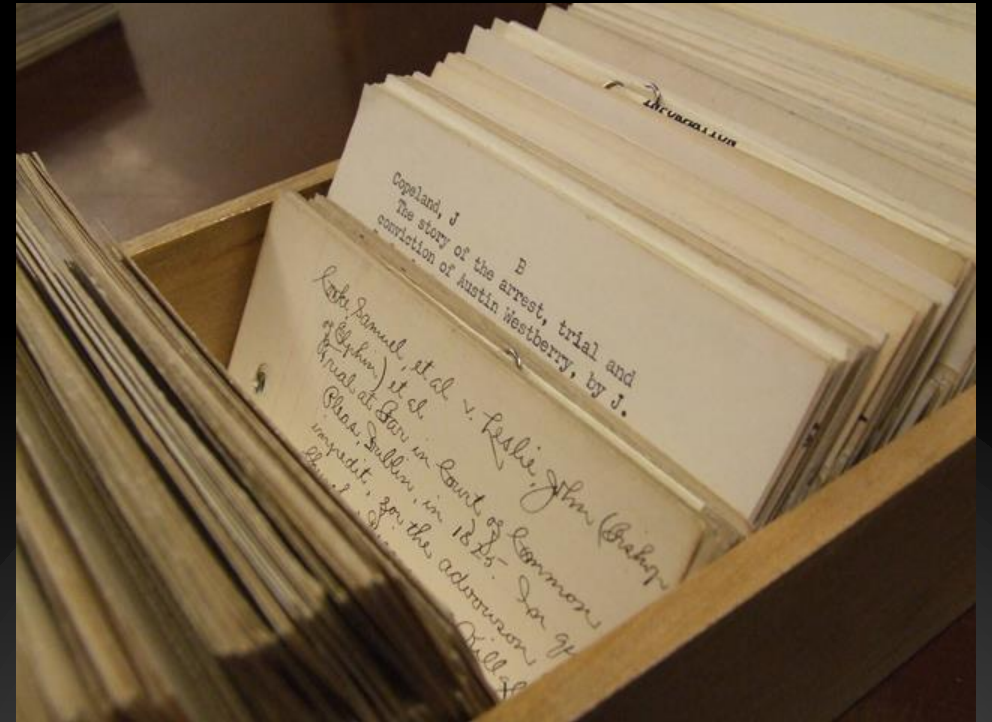 INFORMATION
Copeland, J
B
The story of the arrest, trial and
conviction of Austin Westberry, by J.
Cooke, Samuel, et al v. Leslie, John (Bishop
of Elphin) et al
Trial at Bar in Court of Common
Pleas, Dublin, in 1825. In qu
impedit, for the advowson